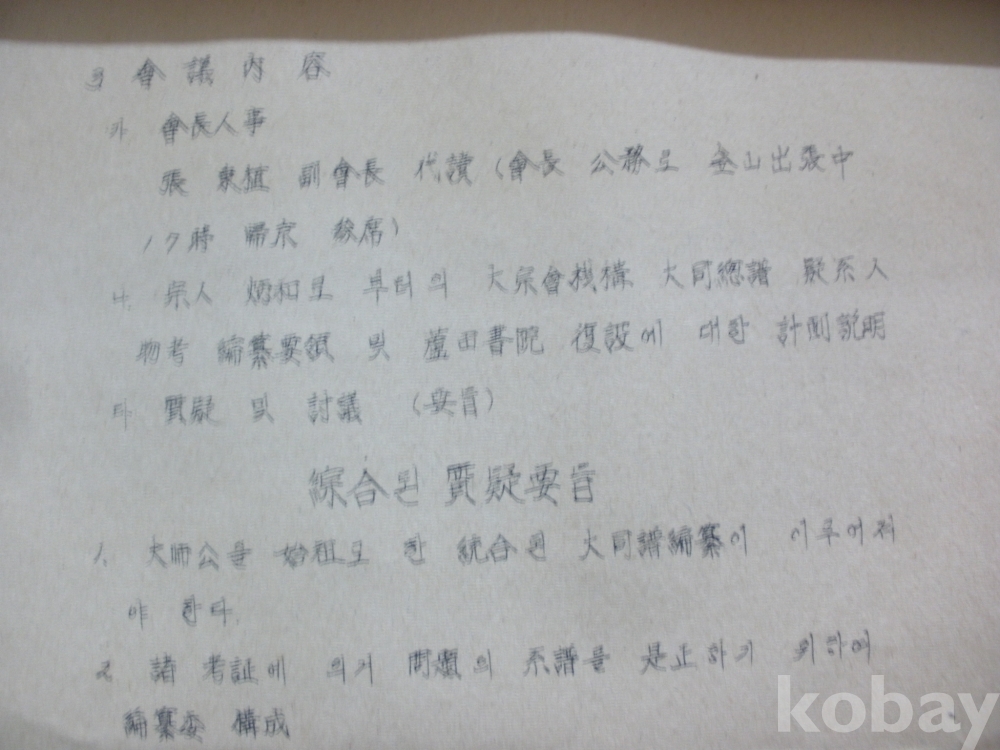 3 會議內容
가. 會長人事
張 東植 副會長 代讀 (會長 公務로 釜山出張中
17時 歸京 參席)
나. 宗人 炳和로 부터의 大宗會機構 大同總譜 疑系人
物考 編纂要領 및 蘆田書院 復設에 대한 計劃說明
다 質疑 및 討議 (要旨)
綜合된 質疑要旨
1. 大師公을 始祖로 한 統合된 大同譜編纂이 이루어져
야 한다.
2. 諸 考証에 의거 問題의 系譜를 是正하기 위하여
編纂委 構成
kobay